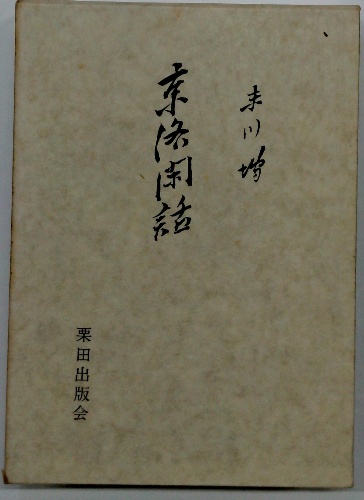 末川博
京洛閑話
栗田出版会